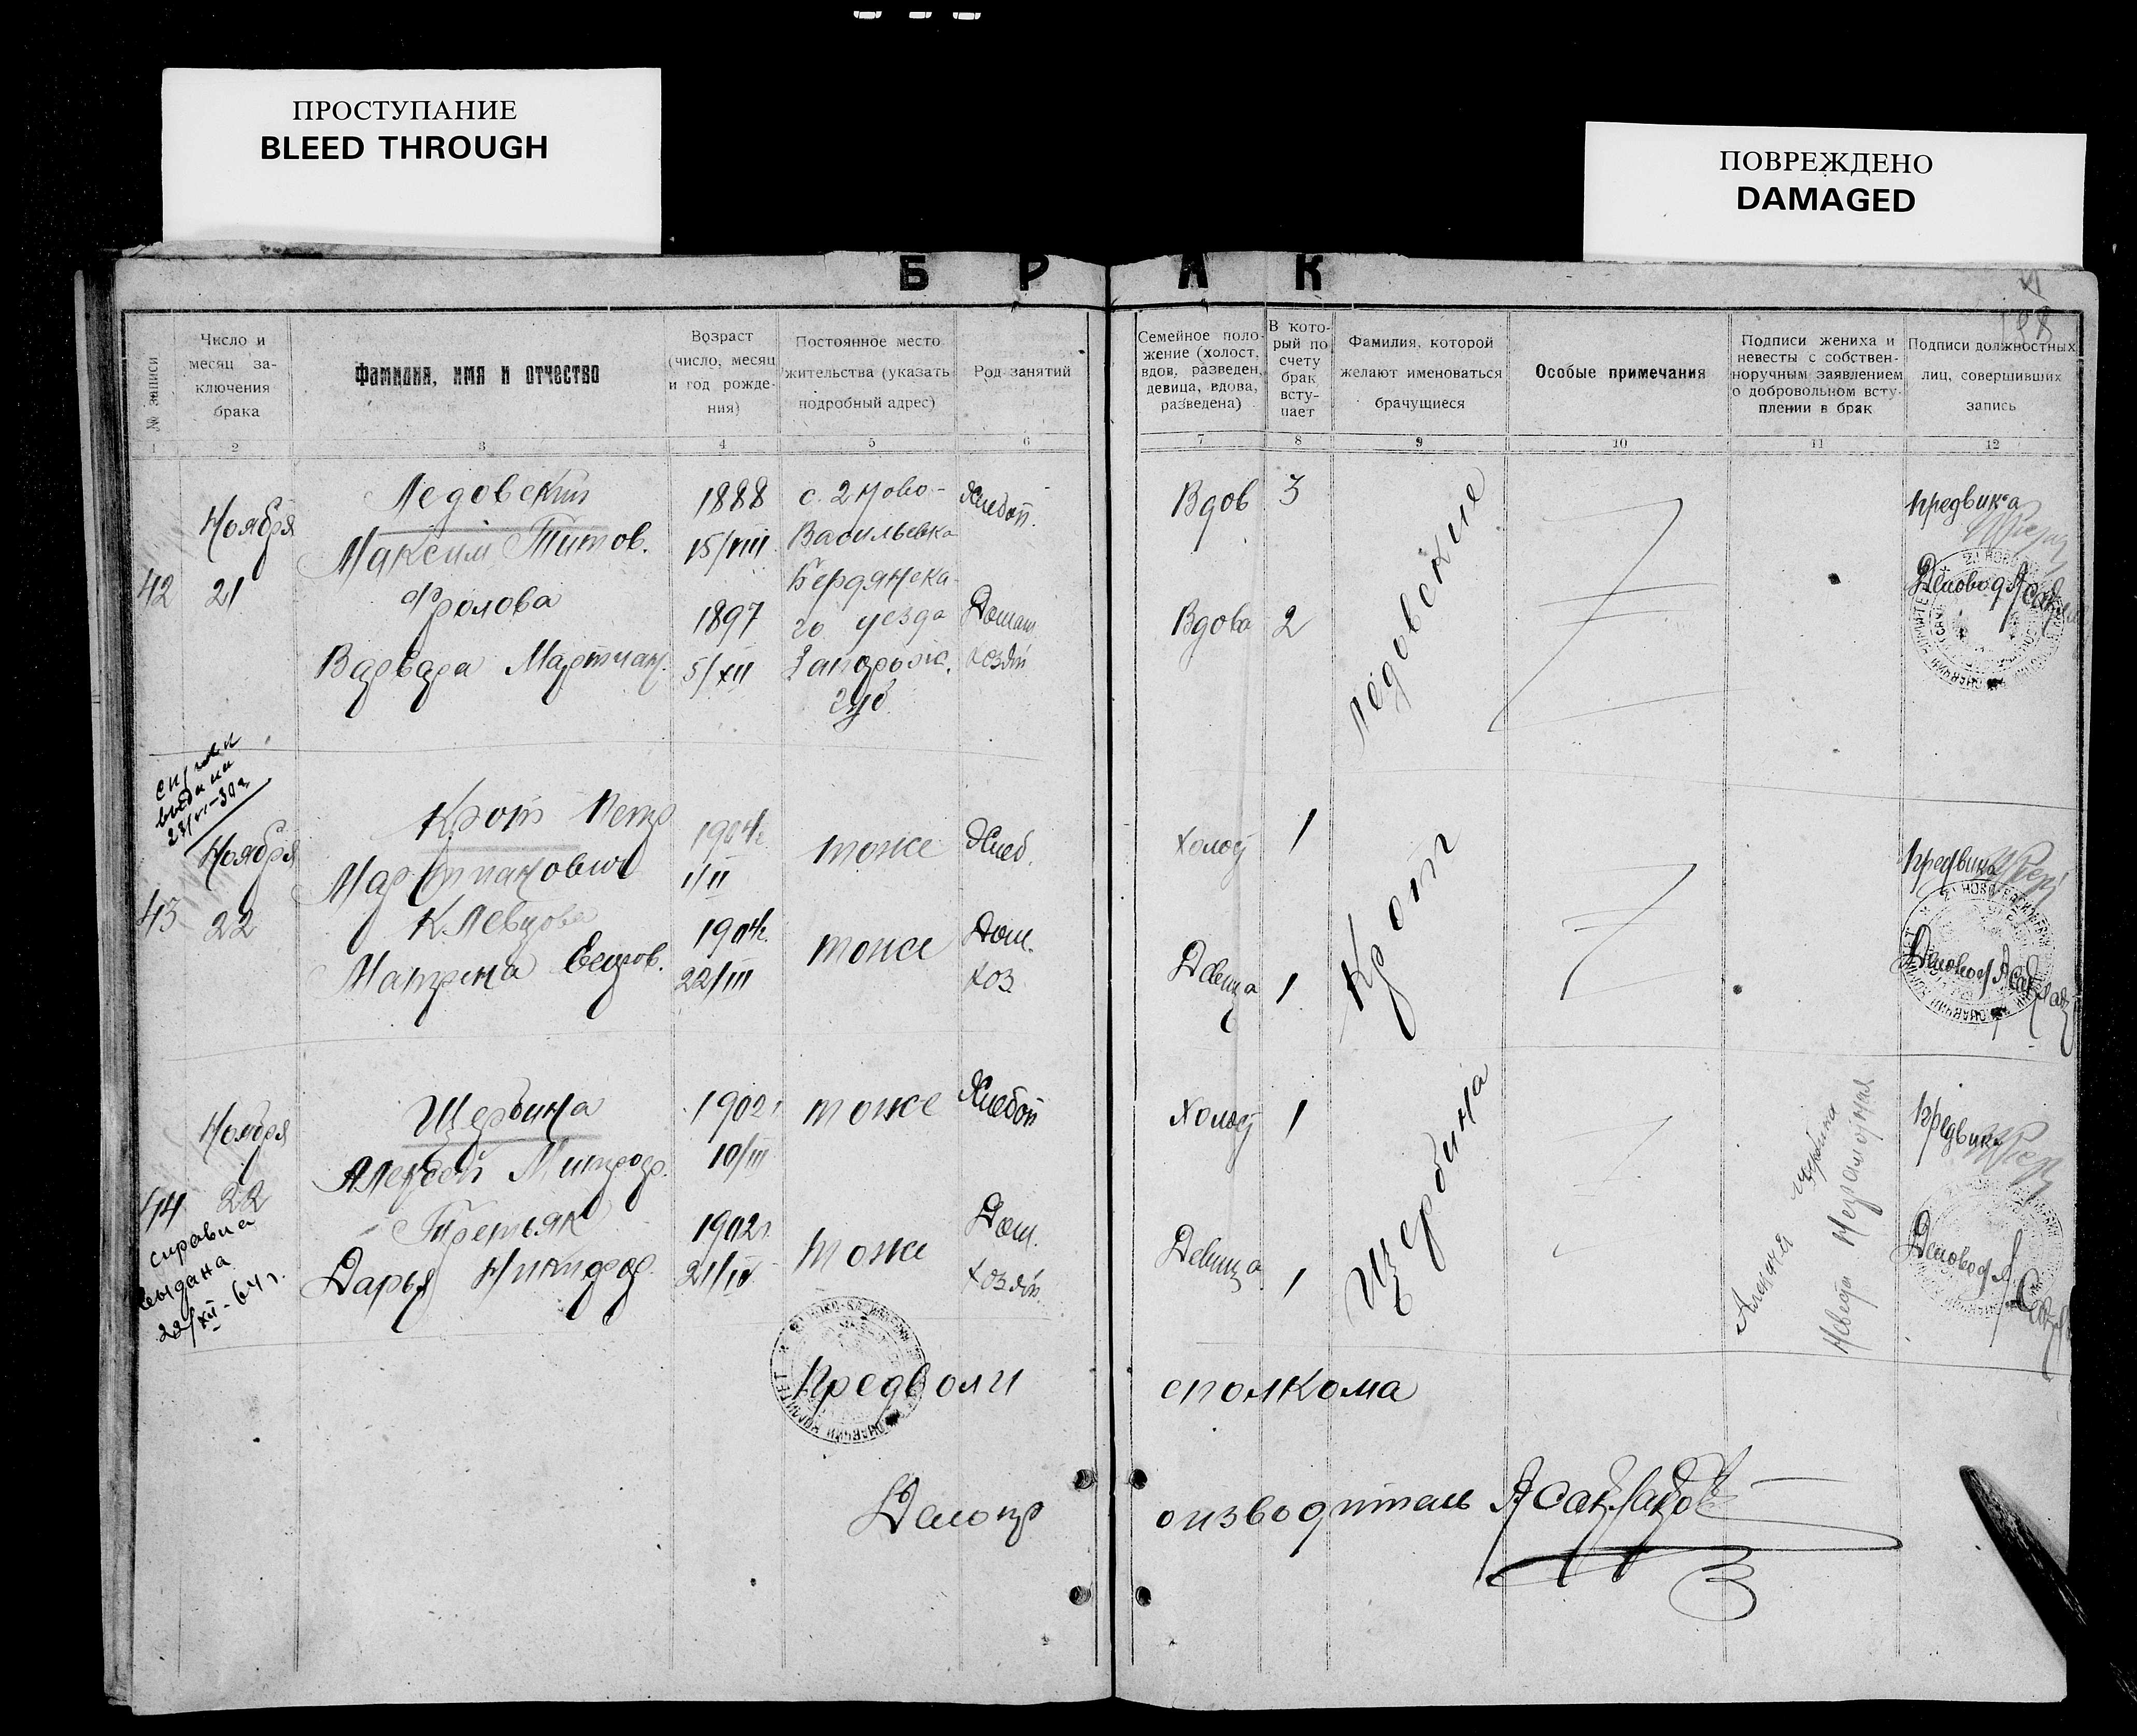 ПРОСТУПАНИЕ
BLEED THROUGH
ПОВРЕЖДЕНО
DAMAGED
Б Р А К
№ записи
Число и
месяц за-
ключения
брака
Фамилия, имя и отчество
Возраст
(число, месяц
и год рожде-
ния)
Постоянное место
жительства (указать
подробный адрес)
Род занятий
Семейное поло-
жение (холост,
вдов, разведен,
девица, вдова,
разведена)
В кото-
рый по
счету
брак
всту-
пает
Фамилия, которой
желают именоваться
брачущиеся
Особые примечания
Подписи жениха и
невесты с собствен-
норучным заявлением
о добровольном всту-
плении в брак
Подписи должностных
лиц, совершивших
запись
1 2 3 4 5 6 7 8 9 10 11 12
42
Ноября
21
Ледовский
Максим Титов.
Фролова
Варвара Мартиан.
1888
15/VIII
1897
5/XII
с. 2 Ново-
Васильевка
Бердянска-
го уезда
Запорож.
губ
Хлебоп.
Домаш.
хозяй
Вдов 3
Вдова 2
Ледовские
предвика
Деловод
выдана
43
Ноября
22
Крот Петр
Мартианович
Клевцова
Матрена Егоров.
1904г.
1/II
1904г.
22/III
тоже
тоже
Хлеб.
Дом.
хоз
Холос 1
Девица 1
Крот
предвика
Деловод
44
Ноября
22
справка
выдана
22/XII-64г.
Щербина
Алексей Митроф.
Третьяк
Дарья Никифор.
1902г
10/III
1902г.
21/IV
тоже
тоже
Хлебоп
Дом.
хозяй.
Холос 1
Девица 1
Щербина
Щербина
неграмотная
предвика
Деловод
Предволисполкома
Делопроизводитель